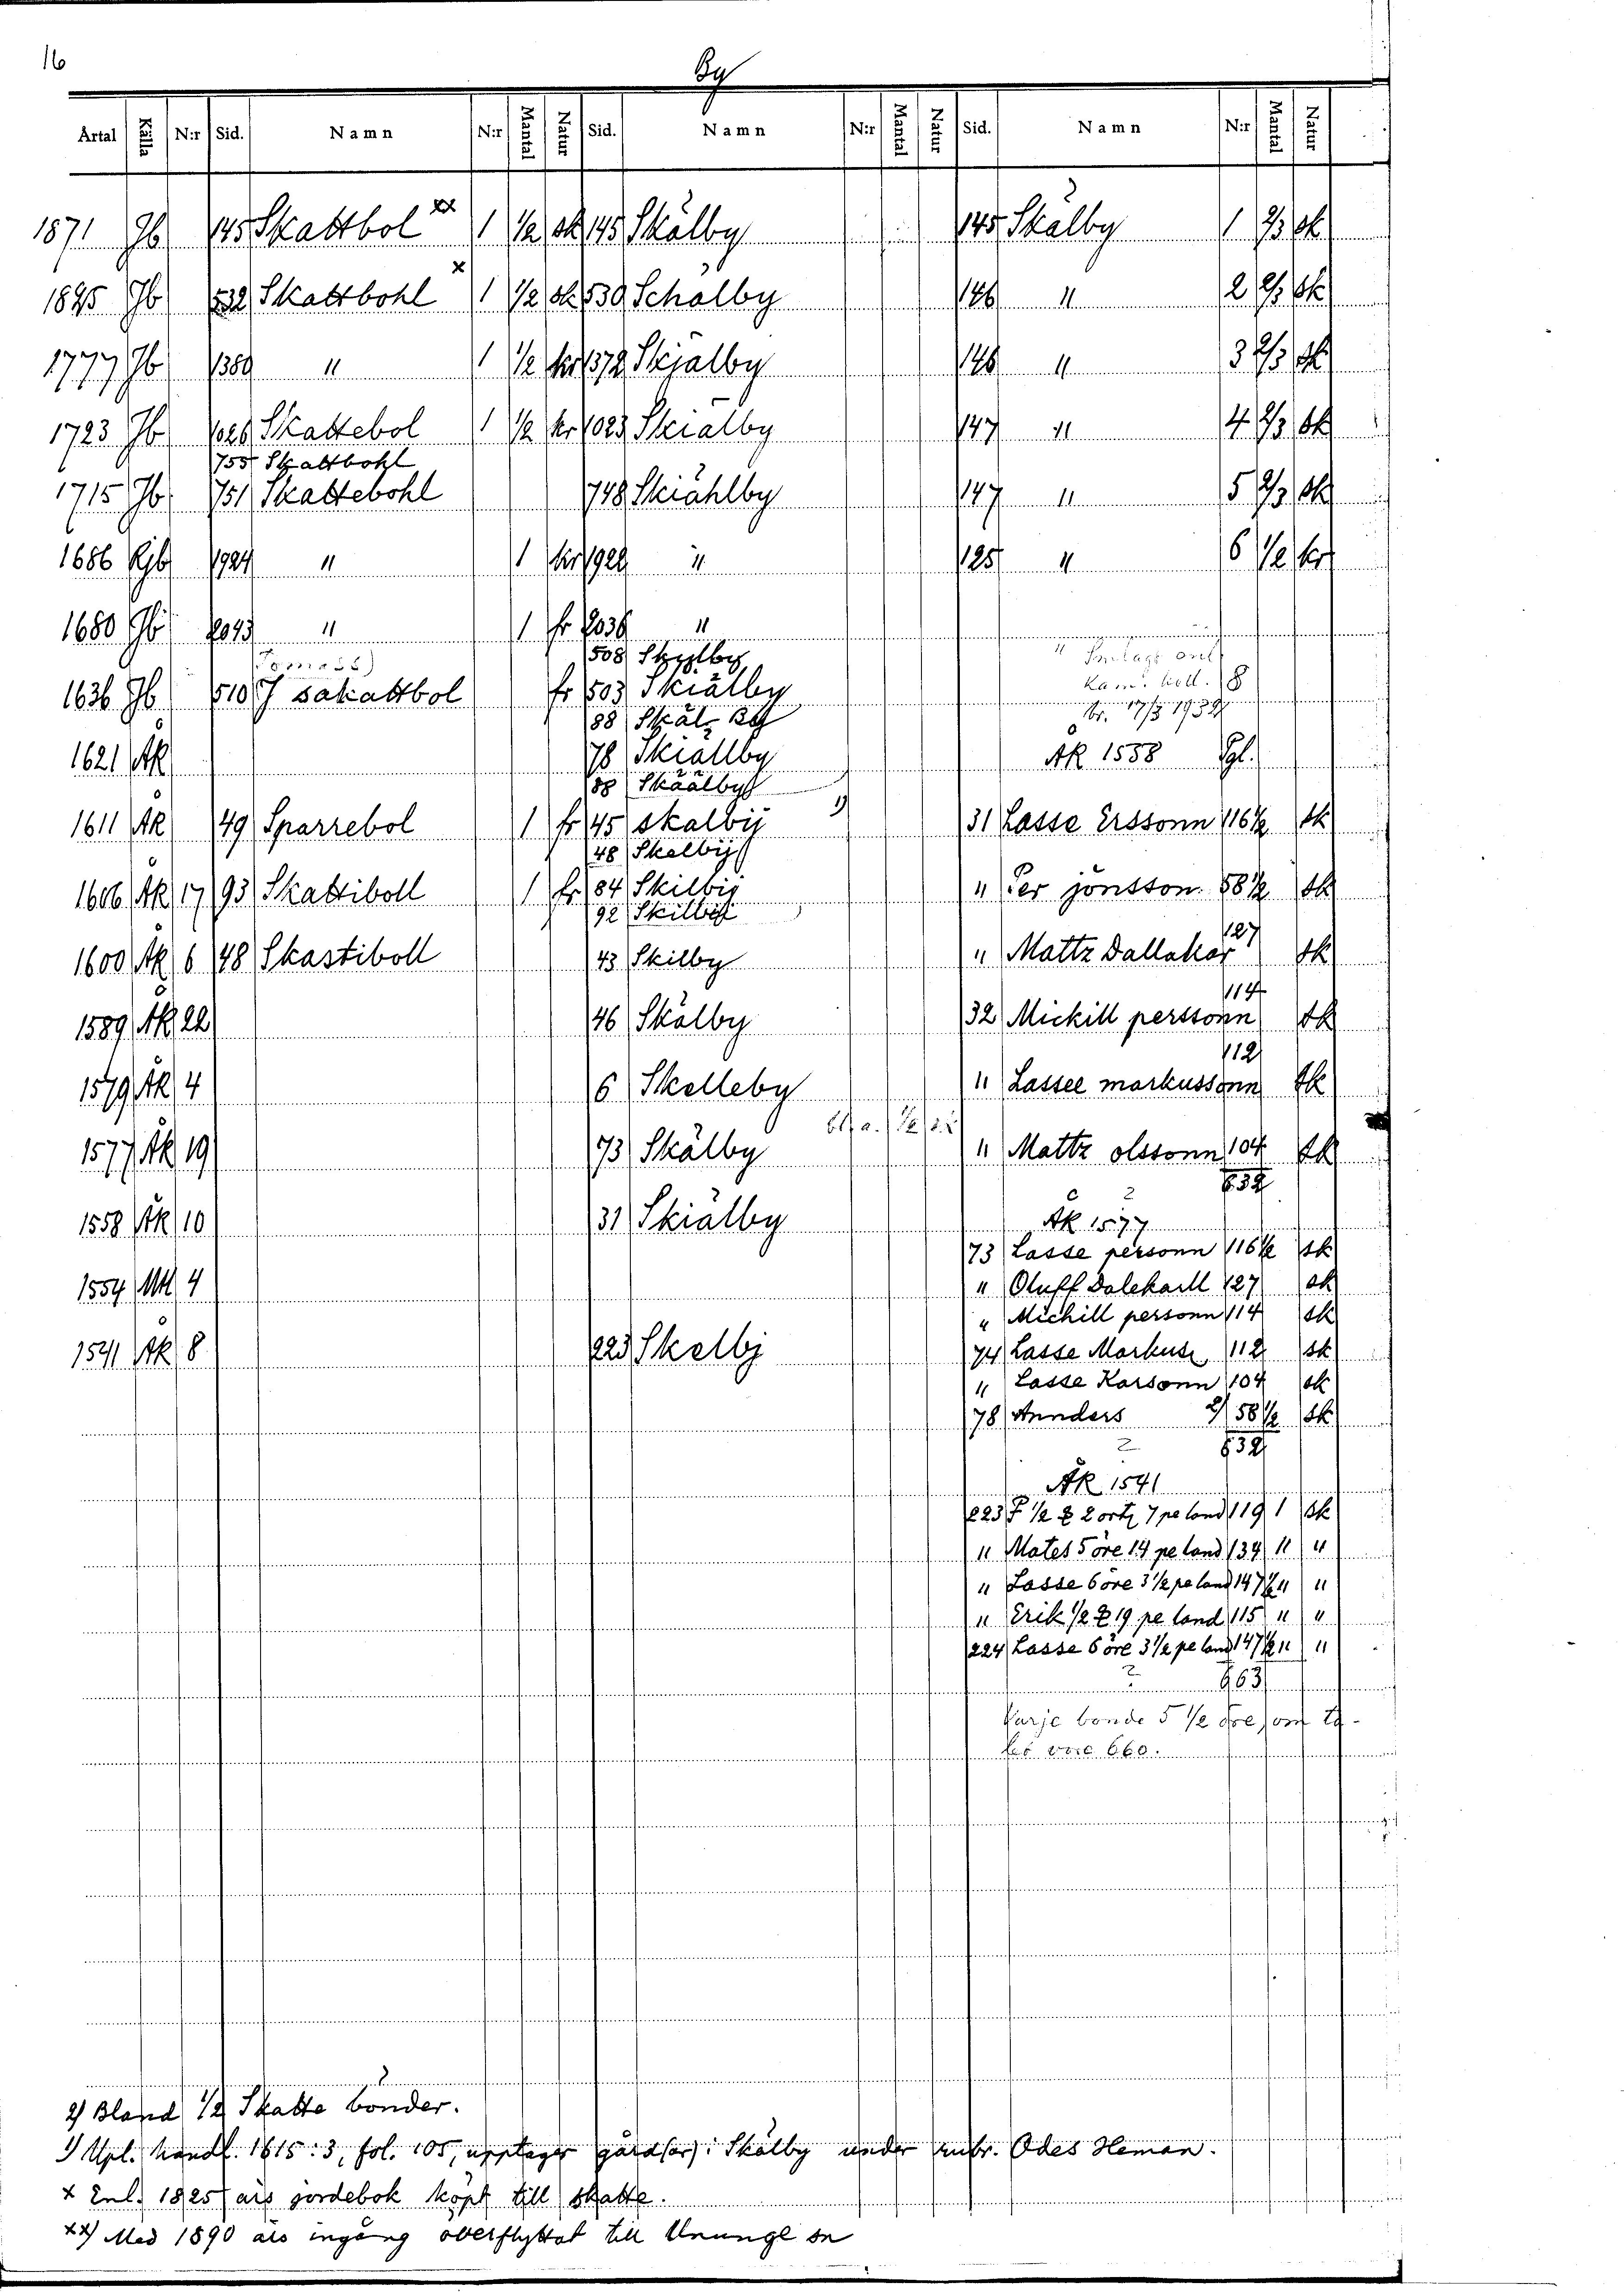 16
By
Årtal Källa N:r Sid. Namn N:r Mantal Natur Sid. Namn N:r Mantal Natur Sid. Namn N:r Mantal Natur
1871 Jb 145 Skattbol xx 1 1/2 sk 145 Skälby 145 Skälby 1 2/3 sk
1825 Jb 532 Skattbohl x 1 1/2 sk 530 Schälby 146 " 2 2/3 sk
1777 Jb 1380 " 1 1/2 kr 1372 Skjälby 146 " 3 2/3 sk
1723 Jb 1026 Skattebol 1 1/2 kr 1023 Skiälby 147 " 4 2/3 sk
755 Skattbohl
1715 Jb 751 Skattebohl 748 Skiählby 147 " 5 2/3 sk
1686 Rjb 1924 " 1 kr 1922 " 125 " 6 1/2 kr
1680 Jb 2043 " 1 fr 2036 "
508 Skyylby
1636 Jb 510 J sakattbol fr 503 Skiälby
kam. koll. 8
br. 17/3 1939
88 Skäl- By
1621 Åk 78 Skiällby Åk 1558 Sgl.
88 Skäälby
1611 Åk 49 Sparrebol 1 fr 45 skalbij 1) 31 Lasse Erssonn 116 1/2 sk
48 Skelbij
1606 Åk 17 93 Skattiboll 1 fr 84 Skilbij " Per jönsson 58 1/2 sk
92 Skilbij
1600 Åk 6 48 Skastiboll 43 Skilby " Mattz Dallakar 127 sk
1589 Åk 22 46 Skälby 32 Mickill perssonn 114 sk
1579 Åk 4 6 Skelleby " Lassee markussonn 112 sk
1577 Åk 19 73 Skälby " Mattz olssonn 104 sk
632
1558 Åk 10 31 Skiälby Åk 1577
73 Lasse personn 116 1/2 sk
1554 Mtl 4 " Oluff Dalekarll 127 sk
" Michill personn 114 sk
1541 Åk 8 223 Skelbj 74 Lasse Markuss 112 sk
" Lasse Karsonn 104 sk
78 Annders 2) 58 1/2 sk
632
Åk 1541
223 P 1/2 £ 2 ortz 7 pe land 119 1 sk
" Mates 5 öre 14 pe land 134 " "
" Lasse 6 öre 3 1/2 pe land 147 1/2 " "
" Erik 1/2 £ 19 pe land 115 " "
224 Lasse 6 öre 3 1/2 pe land 147 1/2 " "
663
Varje bonde 5 1/2 öre
660.
2) Bland 1/2 Skatte bönder.
1) Upl. handl. 1615:3, fol. 105, upptager gård(ar) i Skälby under rubr. Ödes Heman.
x Enl. 1825 års jordebok köpt till skatte.
xx) Med 1890 års ingång överflyttat till Ununge sn